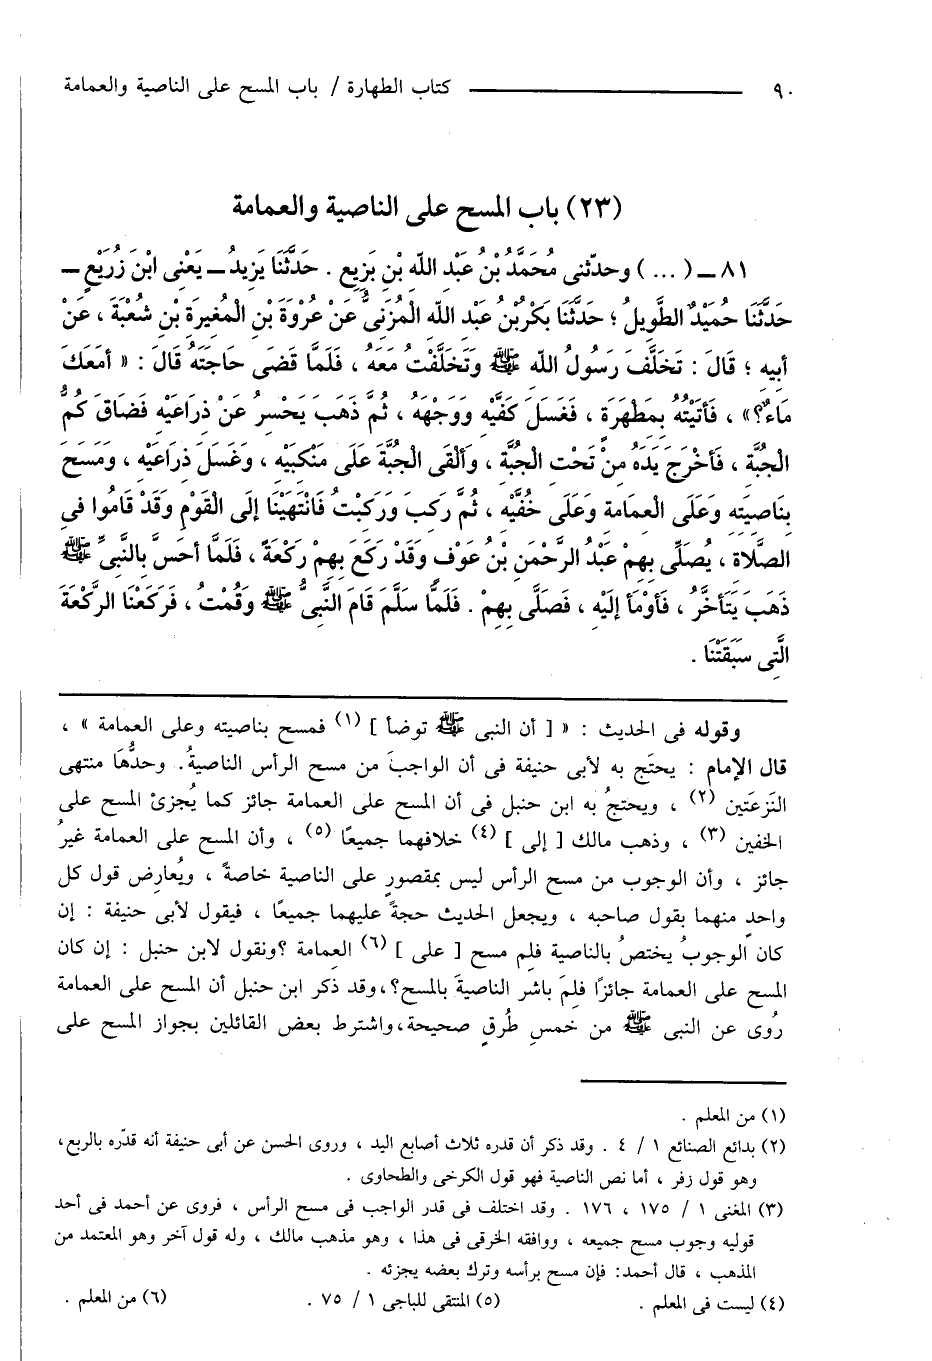 ٩٠ كتاب الطهارة / باب المسح على الناصية والعمامة
(٢٣) باب المسح على الناصية والعمامة
٨١ ــ ( ... ) وحدّثنى مُحَمَّدُ بْنُ عَبْدِ اللّهِ بْنِ بَزِيعٍ . حَدَّثَنَا يَزِيدُ ــ يَعْنِى ابْنَ زُرَيْعٍ ــ
حَدَّثَنَا حُمَيْدٌ الطَّوِيلُ ؛ حَدَّثَنَا بَكْرُ بْنُ عَبْدِ اللّهِ الْمُزَنِىُّ عَنْ عُرْوَةَ بْنِ الْمُغِيرَةِ بْنِ شُعْبَةَ ، عَنْ
أَبِيهِ ؛ قَالَ : تَخَلَّفَ رَسُولُ اللّهِ ﷺ وَتَخَلَّفْتُ مَعَهُ ، فَلَمَّا قَضَى حَاجَتَهُ قَالَ : « أَمَعَكَ
مَاءٌ؟» ، فَأَتَيْتُهُ بِمَطْهَرَةٍ ، فَغَسَلَ كَفَّيْهِ وَوَجْهَهُ ، ثُمَّ ذَهَبَ يَحْسِرُ عَنْ ذِرَاعَيْهِ فَضَاقَ كُمُّ
الْجُبَّةِ ، فَأَخْرَجَ يَدَهُ مِنْ تَحْتِ الْجُبَّةِ ، وَأَلْقَى الْجُبَّةَ عَلَى مَنْكِبَيْهِ ، وَغَسَلَ ذِرَاعَيْهِ ، وَمَسَحَ
بِنَاصِيَتِهِ وَعَلَى الْعِمَامَةِ وَعَلَى خُفَّيْهِ ، ثُمَّ رَكِبَ وَرَكِبْتُ فَانْتَهَيْنَا إِلَى الْقَوْمِ وَقَدْ قَامُوا فِى
الصَّلاةِ ، يُصَلِّى بِهِمْ عَبْدُ الرَّحْمَنِ بْنُ عَوْفٍ وَقَدْ رَكَعَ بِهِمْ رَكْعَةً ، فَلَمَّا أَحَسَّ بِالنَّبِىِّ ﷺ
ذَهَبَ يَتَأَخَّرُ ، فَأَوْمَأَ إِلَيْهِ ، فَصَلَّى بِهِمْ . فَلَمَّا سَلَّمَ قَامَ النَّبِىُّ ﷺ وَقُمْتُ ، فَرَكَعْنَا الرَّكْعَةَ
الَّتِى سَبَقَتْنَا .
وقوله فى الحديث : « [ أن النبى ﷺ توضأ ] (١) فمسح بناصيته وعلى العمامة » ،
قال الإمام : يحتَج به لأبى حنيفة فى أن الواجبَ من مسح الرأس الناصيةُ. وحدُّها منتهى
النَزعَتين (٢) ، ويحتجُ به ابن حنبل فى أن المسح على العمامة جائز كما يُجزئ المسح على
الخفين (٣) ، وذهب مالك [ إلى ] (٤) خلافهما جميعًا (٥) ، وأن المسح على العمامة غيرُ
جائز ، وأن الوجوب من مسح الرأس ليس بمقصورٍ على الناصية خاصةً ، ويُعارض قول كل
واحدٍ منهما بقول صاحبه ، ويجعل الحديث حجةً عليهما جميعًا ، فيقول لأبى حنيفة : إن
كان الوجوبُ يختصُ بالناصية فلِم مسح [ على ] (٦) العمامة ؟ونقول لابن حنبل : إن كان
المسح على العمامة جائزًا فلِمَ باشر الناصيةَ بالمسح؟،وقد ذكر ابن حنبل أن المسح على العمامة
رُوى عن النبى ﷺ من خمسِ طُرقٍ صحيحة،واشترط بعض القائلين بجواز المسح على
(١) من المعلم .
(٢) بدائع الصنائع ١ / ٤ . وقد ذكر أن قدره ثلاث أصابع اليد ، وروى الحسن عن أبى حنيفة أنه قدّره بالربع،
وهو قول زفر ، أما نص الناصية فهو قول الكرخى والطحاوى .
(٣) المغنى ١ / ١٧٥ ، ١٧٦ . وقد اختلف فى قدر الواجب فى مسح الرأس ، فروى عن أحمد فى أحد
قوليه وجوب مسح جميعه ، ووافقه الخرقى فى هذا ، وهو مذهب مالك ، وله قول آخر وهو المعتمد من
المذهب ، قال أحمد: فإن مسح برأسه وترك بعضه يجزئه .
(٤) ليست فى المعلم . (٥) المنتقى للباجى ١ / ٧٥ . (٦) من المعلم .